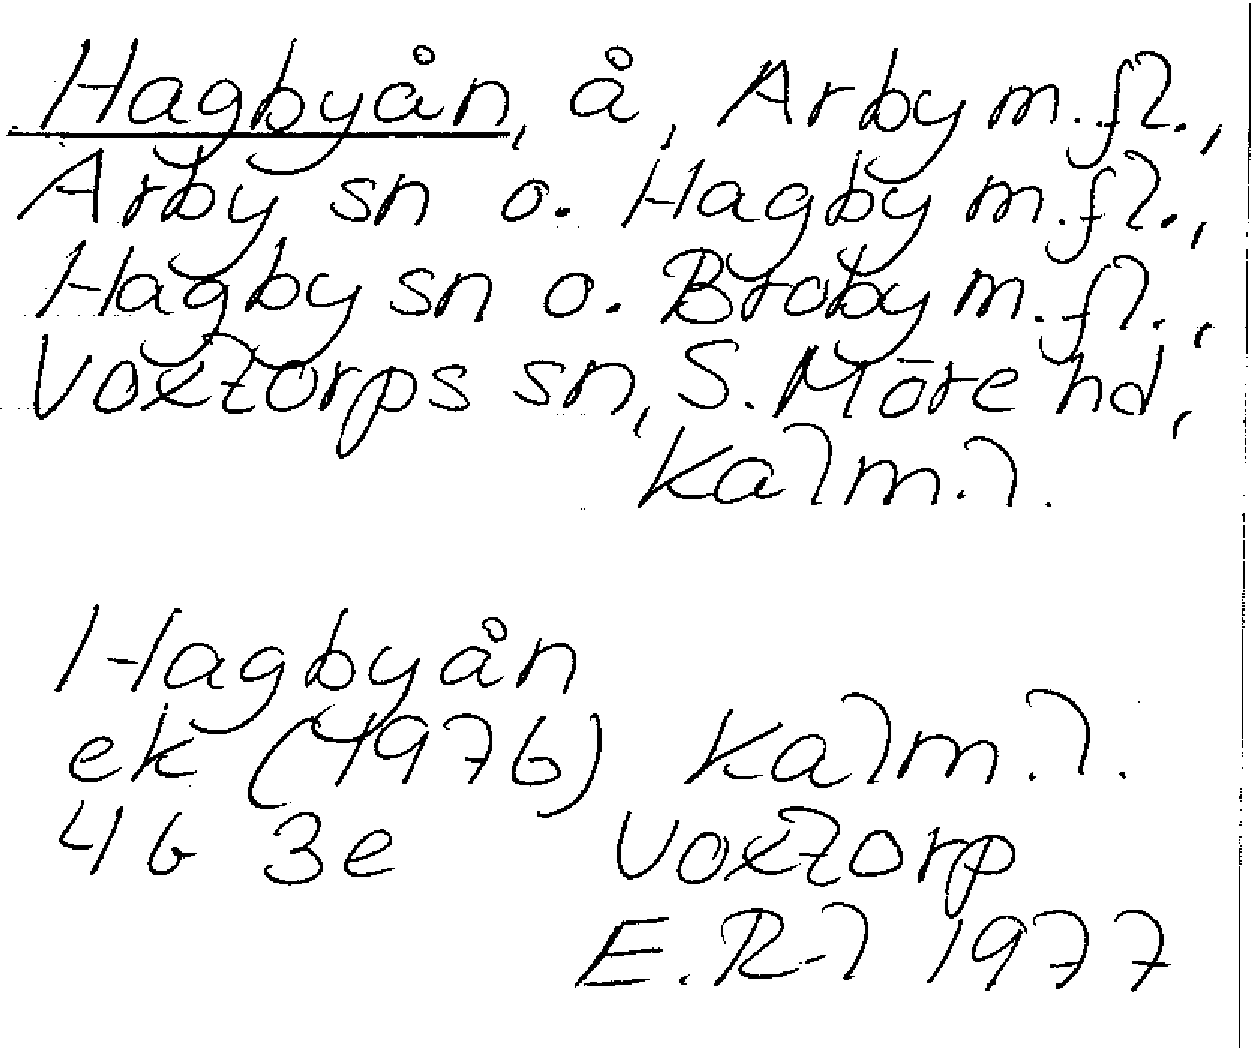 Hagbyån, å, Arby m.fl.,
Arby sn o. Hagby m.fl.,
Hagby sn o. Broby m.fl.,
Voxtorps sn, S. Möre hd,
Kalm.l.
Hagbyån
ek (1976) Kalm.l.
4G 3e Voxtorp
E.R-l 1977